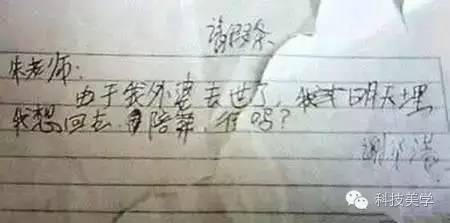 请假条
朱老师:
由于我外婆去世了,我 明天埋
我想回去 陪葬,行吗?
谢
科技美学